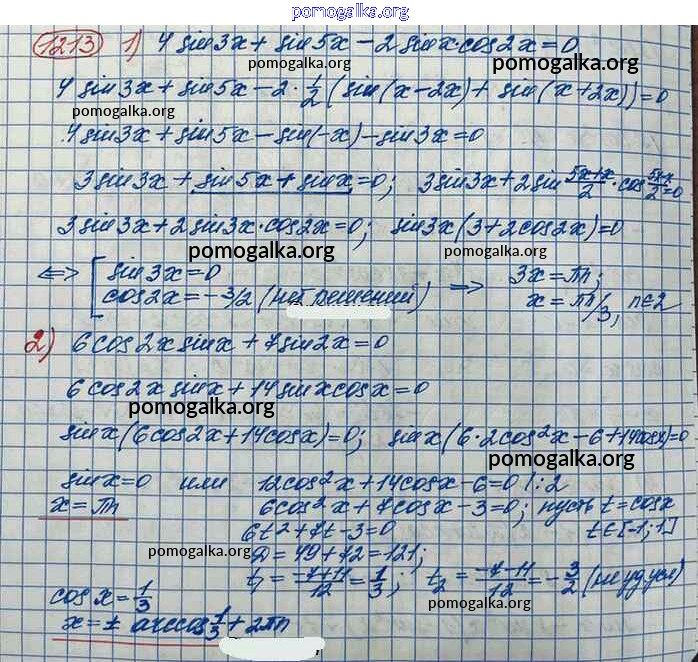 pomogalka.org
1213 1) 4 sin3x + sin5x - 2 sinx·cos2x = 0
pomogalka.org
4 sin3x + sin5x - 2·1/2 (sin(x-2x) + sin(x+2x)) = 0
pomogalka.org
4 sin3x + sin5x - sin(-x) - sin3x = 0
pomogalka.org
3 sin3x + sin5x + sinx = 0; 3 sin3x + 2 sin (5x+x)/2 · cos (5x-x)/2 = 0
3 sin3x + 2 sin3x·cos2x = 0; sin3x(3 + 2cos2x) = 0
pomogalka.org pomogalka.org
⟺ [ sin3x = 0 ⟹ 3x = πn;
cos2x = -3/2 (нет решений) x = πn/3, n∈Z
2) 6cos2x sinx + 7sin2x = 0
6cos2x sinx + 14 sinx cosx = 0
pomogalka.org
sinx(6cos2x + 14cosx) = 0; sinx(6·2cos²x - 6 + 14cosx) = 0
pomogalka.org
sinx = 0 или 12cos²x + 14cosx - 6 = 0 |:2
x = πn 6cos²x + 7cosx - 3 = 0; пусть t = cosx
6t² + 7t - 3 = 0 t∈[-1;1]
pomogalka.org
D = 49 + 72 = 121;
t₁ = (-7+11)/12 = 1/3; t₂ = (-7-11)/12 = -3/2 (не уд усл)
pomogalka.org
cosx = 1/3
x = ± arccos 1/3 + 2πn